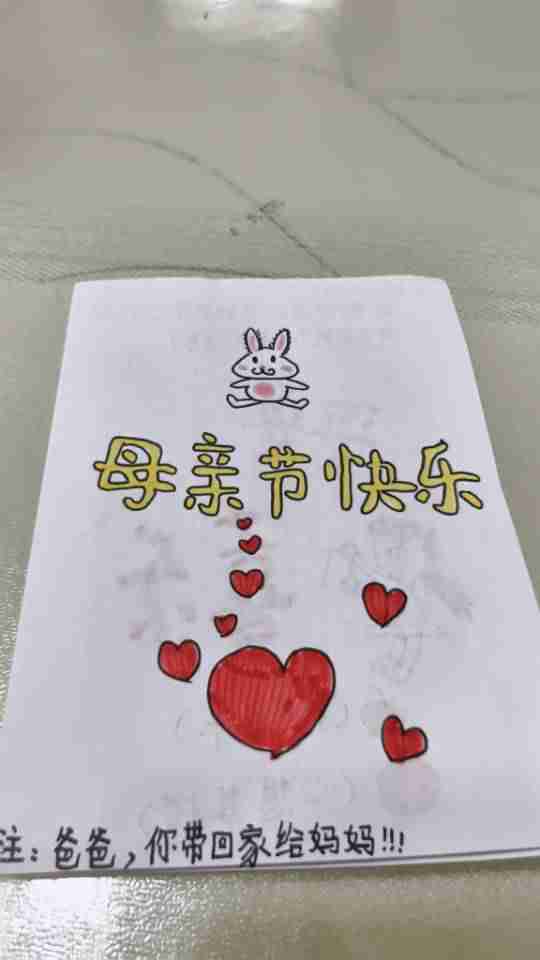 母亲节快乐
注：爸爸，你带回家给妈妈!!!